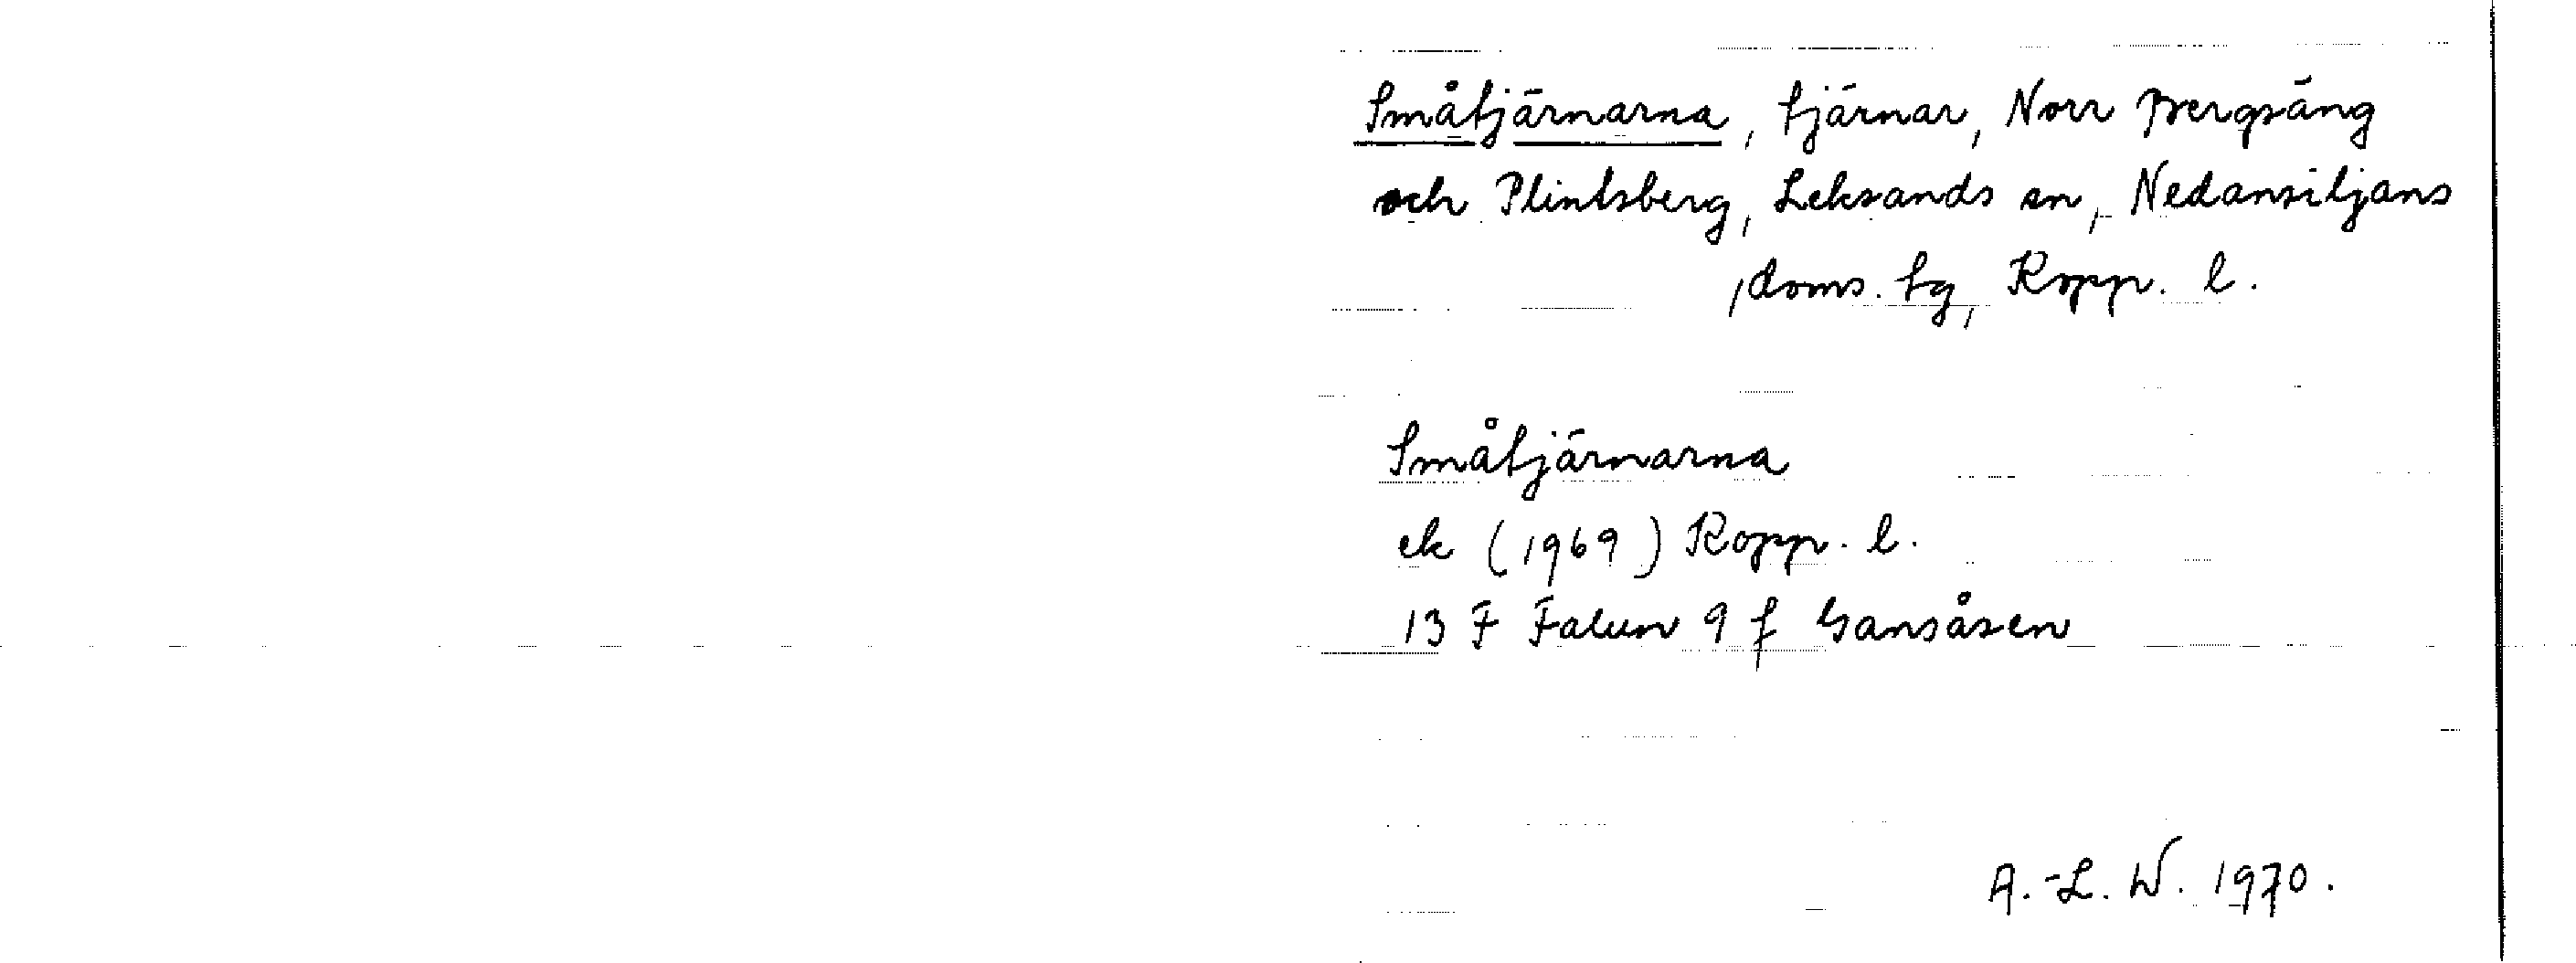 Småtjärnarna, tjärnar, Norr Bergsäng
och Plintsberg, Leksands sn, Nedansiljans
doms. tg, Kopp. l.
Småtjärnarna
ek (1969) Kopp. l.
13 F Falun 9 f Gansåsen
A.-L. W. 1970.